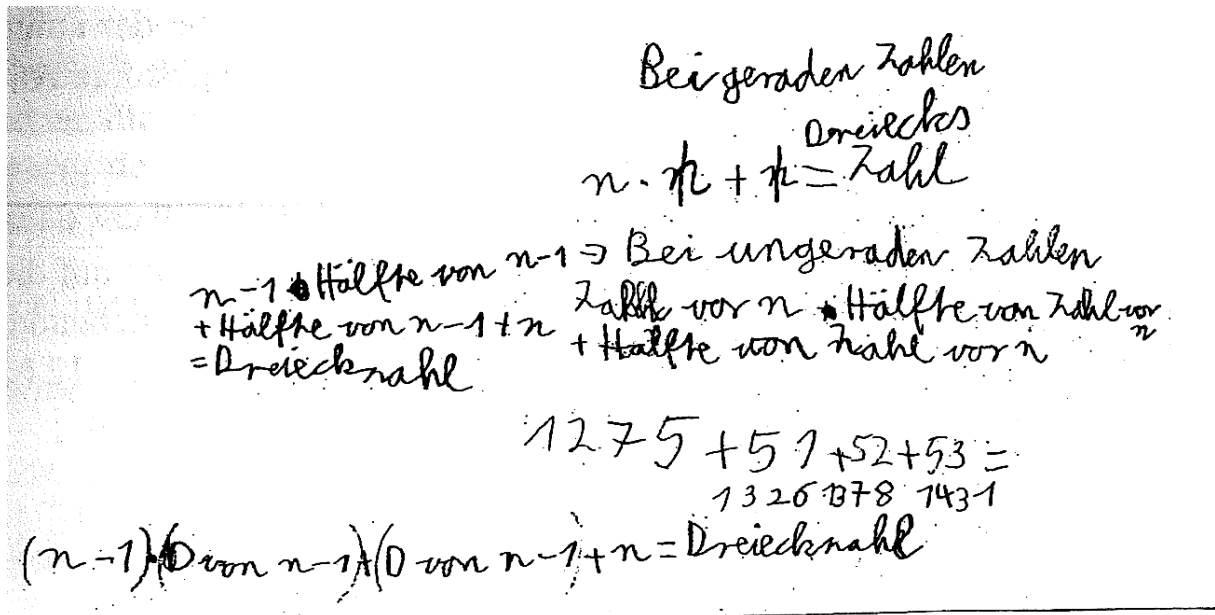 Bei geraden Zahlen
Dreiecks
n · n + n = Zahl
n-1 · Hälfte von n-1 → Bei ungeraden Zahlen
+ Hälfte von n-1 + n
= Dreieckzahl
Zahl vor n · Hälfte von Zahl vor n
+ Hälfte von Zahl vor n
1275 + 51 + 52 + 53 =
1326 1378 1431
(n-1)·(D von n-1)+(D von n-1)+n = Dreieckzahl